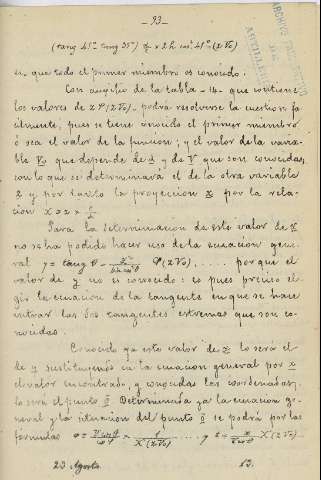 - 93 -
ARCHIVO FACULTATIVO
DE
ARTILLERÍA
(tang 45° - tang 35°) g x = 2 h cos² 45° (z V₀)
en que todo el primer miembro es conocido.
Con auxilio de la tabla - 14 - que contiene
los valores de z φ (z V₀) - podrá resolverse la cuestion fa
cilmente, pues se tiene conocido el primer miembro
ó sea el valor de la funcion; y el valor de la varia
ble V₀ que depende de y de V que son conocidas,
con lo que se determinará el de la otra variable
z y por tanto la proyeccion x por la rela-
cion
Para la determinacion de este valor de x
no se ha podido hacer uso de la ecuacion gene
ral y = tang φ - φ (z V₀) .... porque el
valor de y no es conocido: es pues preciso el-
gir la ecuacion de la tangente en que se hace
entrar las dos tangentes extremas que son co-
nocidas.
Conocido ya este valor de x lo será el
de y sustituyendo en la ecuacion general por x
el valor encontrado, y conocidas las coordenadas,
lo será el punto Determinada ya la ecuacion ge
neral y la situacion del punto se podrá por las
formulas
23 Agosto 53.